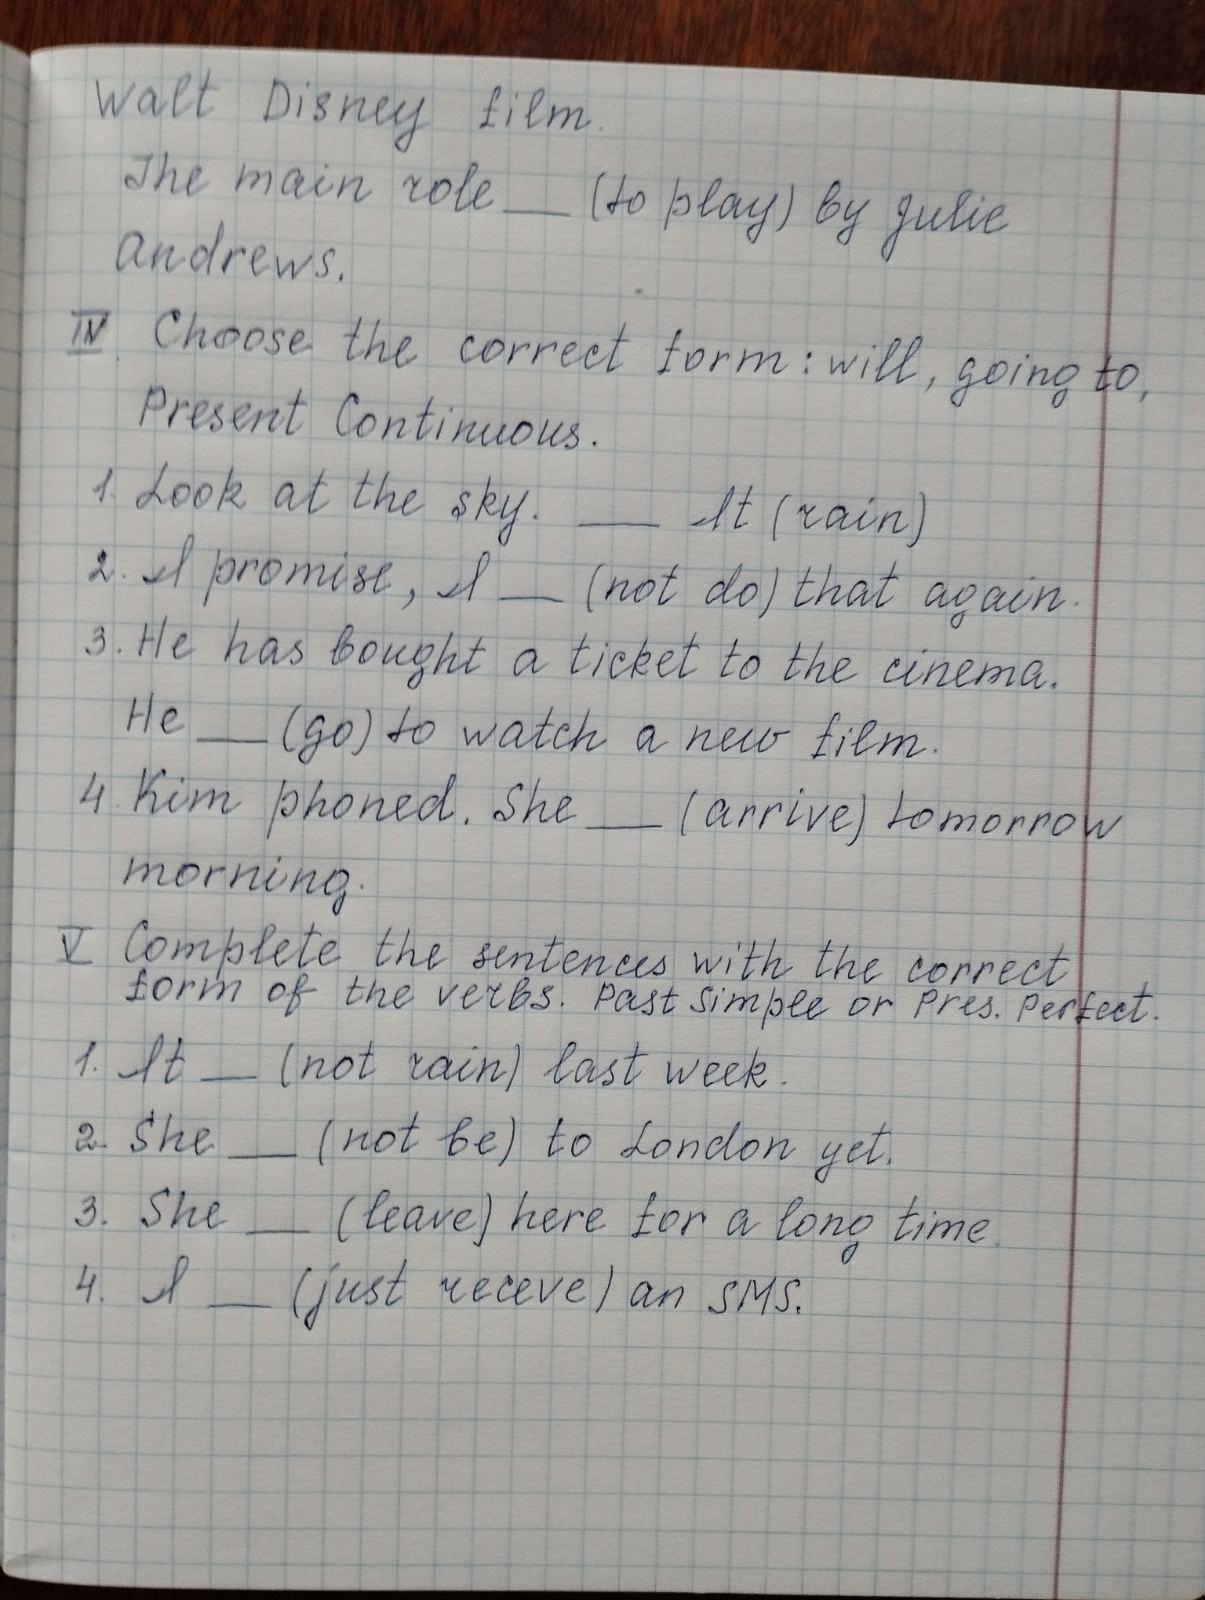 Walt Disney film.
The main role __ (to play) by Julie
Andrews.
IV. Choose the correct form: will, going to,
Present Continuous.
1. Look at the sky. __ It (rain)
2. I promise, I __ (not do) that again.
3. He has bought a ticket to the cinema.
He __ (go) to watch a new film.
4. Kim phoned. She __ (arrive) tomorrow
morning.
V Complete the sentences with the correct
form of the verbs. Past Simple or Pres. Perfect.
1. It __ (not rain) last week.
2. She __ (not be) to London yet.
3. She __ (leave) here for a long time.
4. I __ (just receve) an SMS.